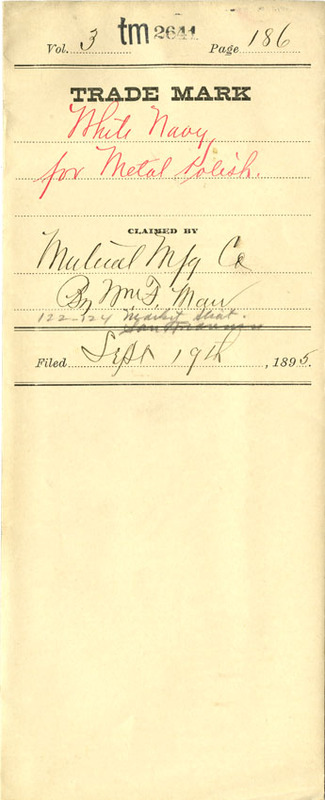 Vol. 3 tm 2641 Page 186
TRADE MARK
White Navy,
for Metal Polish.
CLAIMED BY
Mutual Mfg Co
By Wm F. Maw
122-124 Market Street.
San Francisco
Filed Sept 19th, 1895.